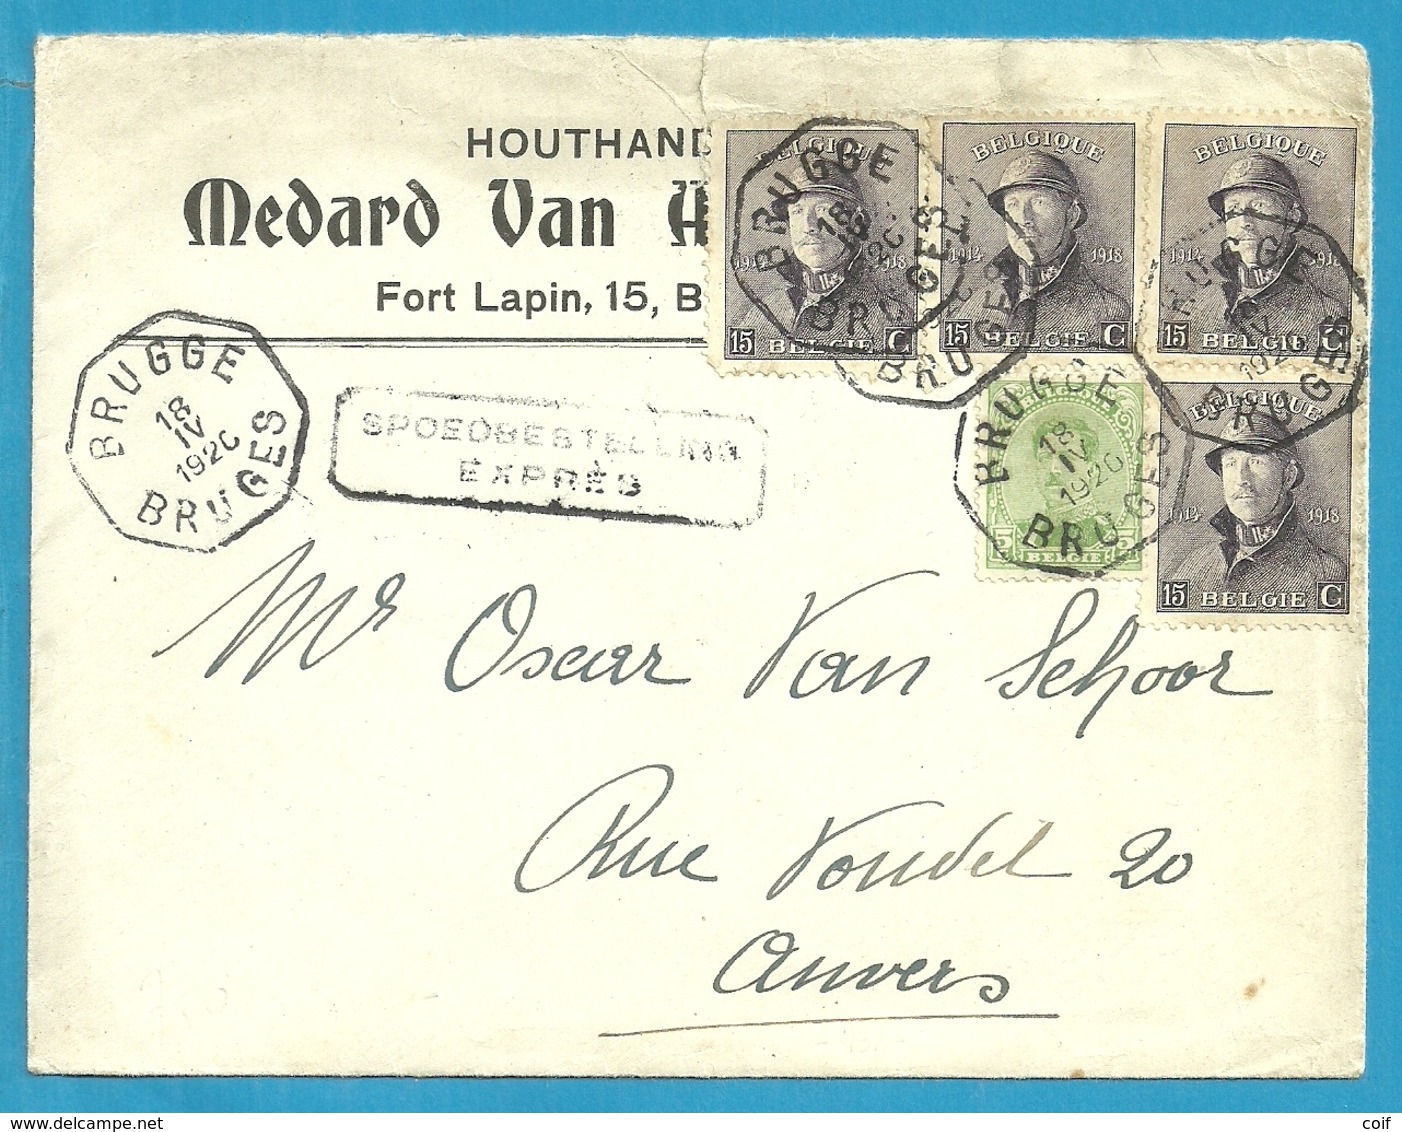 HOUTHAND
Medard Van H
Fort Lapin, 15, B
BELGIQUE
1914 1918
15 BELGIE C
BELGIQUE
1914 1918
15 BELGIE C
BELGIQUE
1914 1918
15 BELGIE C
BELGIQUE
1914 1918
15 BELGIE C
5 BELGIE 5
BRUGGE
18
IV
1920
BRUGES
BRUGGE
18
IV
1920
BRUGES
BRUGGE
18
IV
1920
BRUGES
SPOEDBESTELLING
EXPRÈS
Mr Oscar Van Schoor
Rue Vondel 20
Anvers
www.delcampe.net
coif